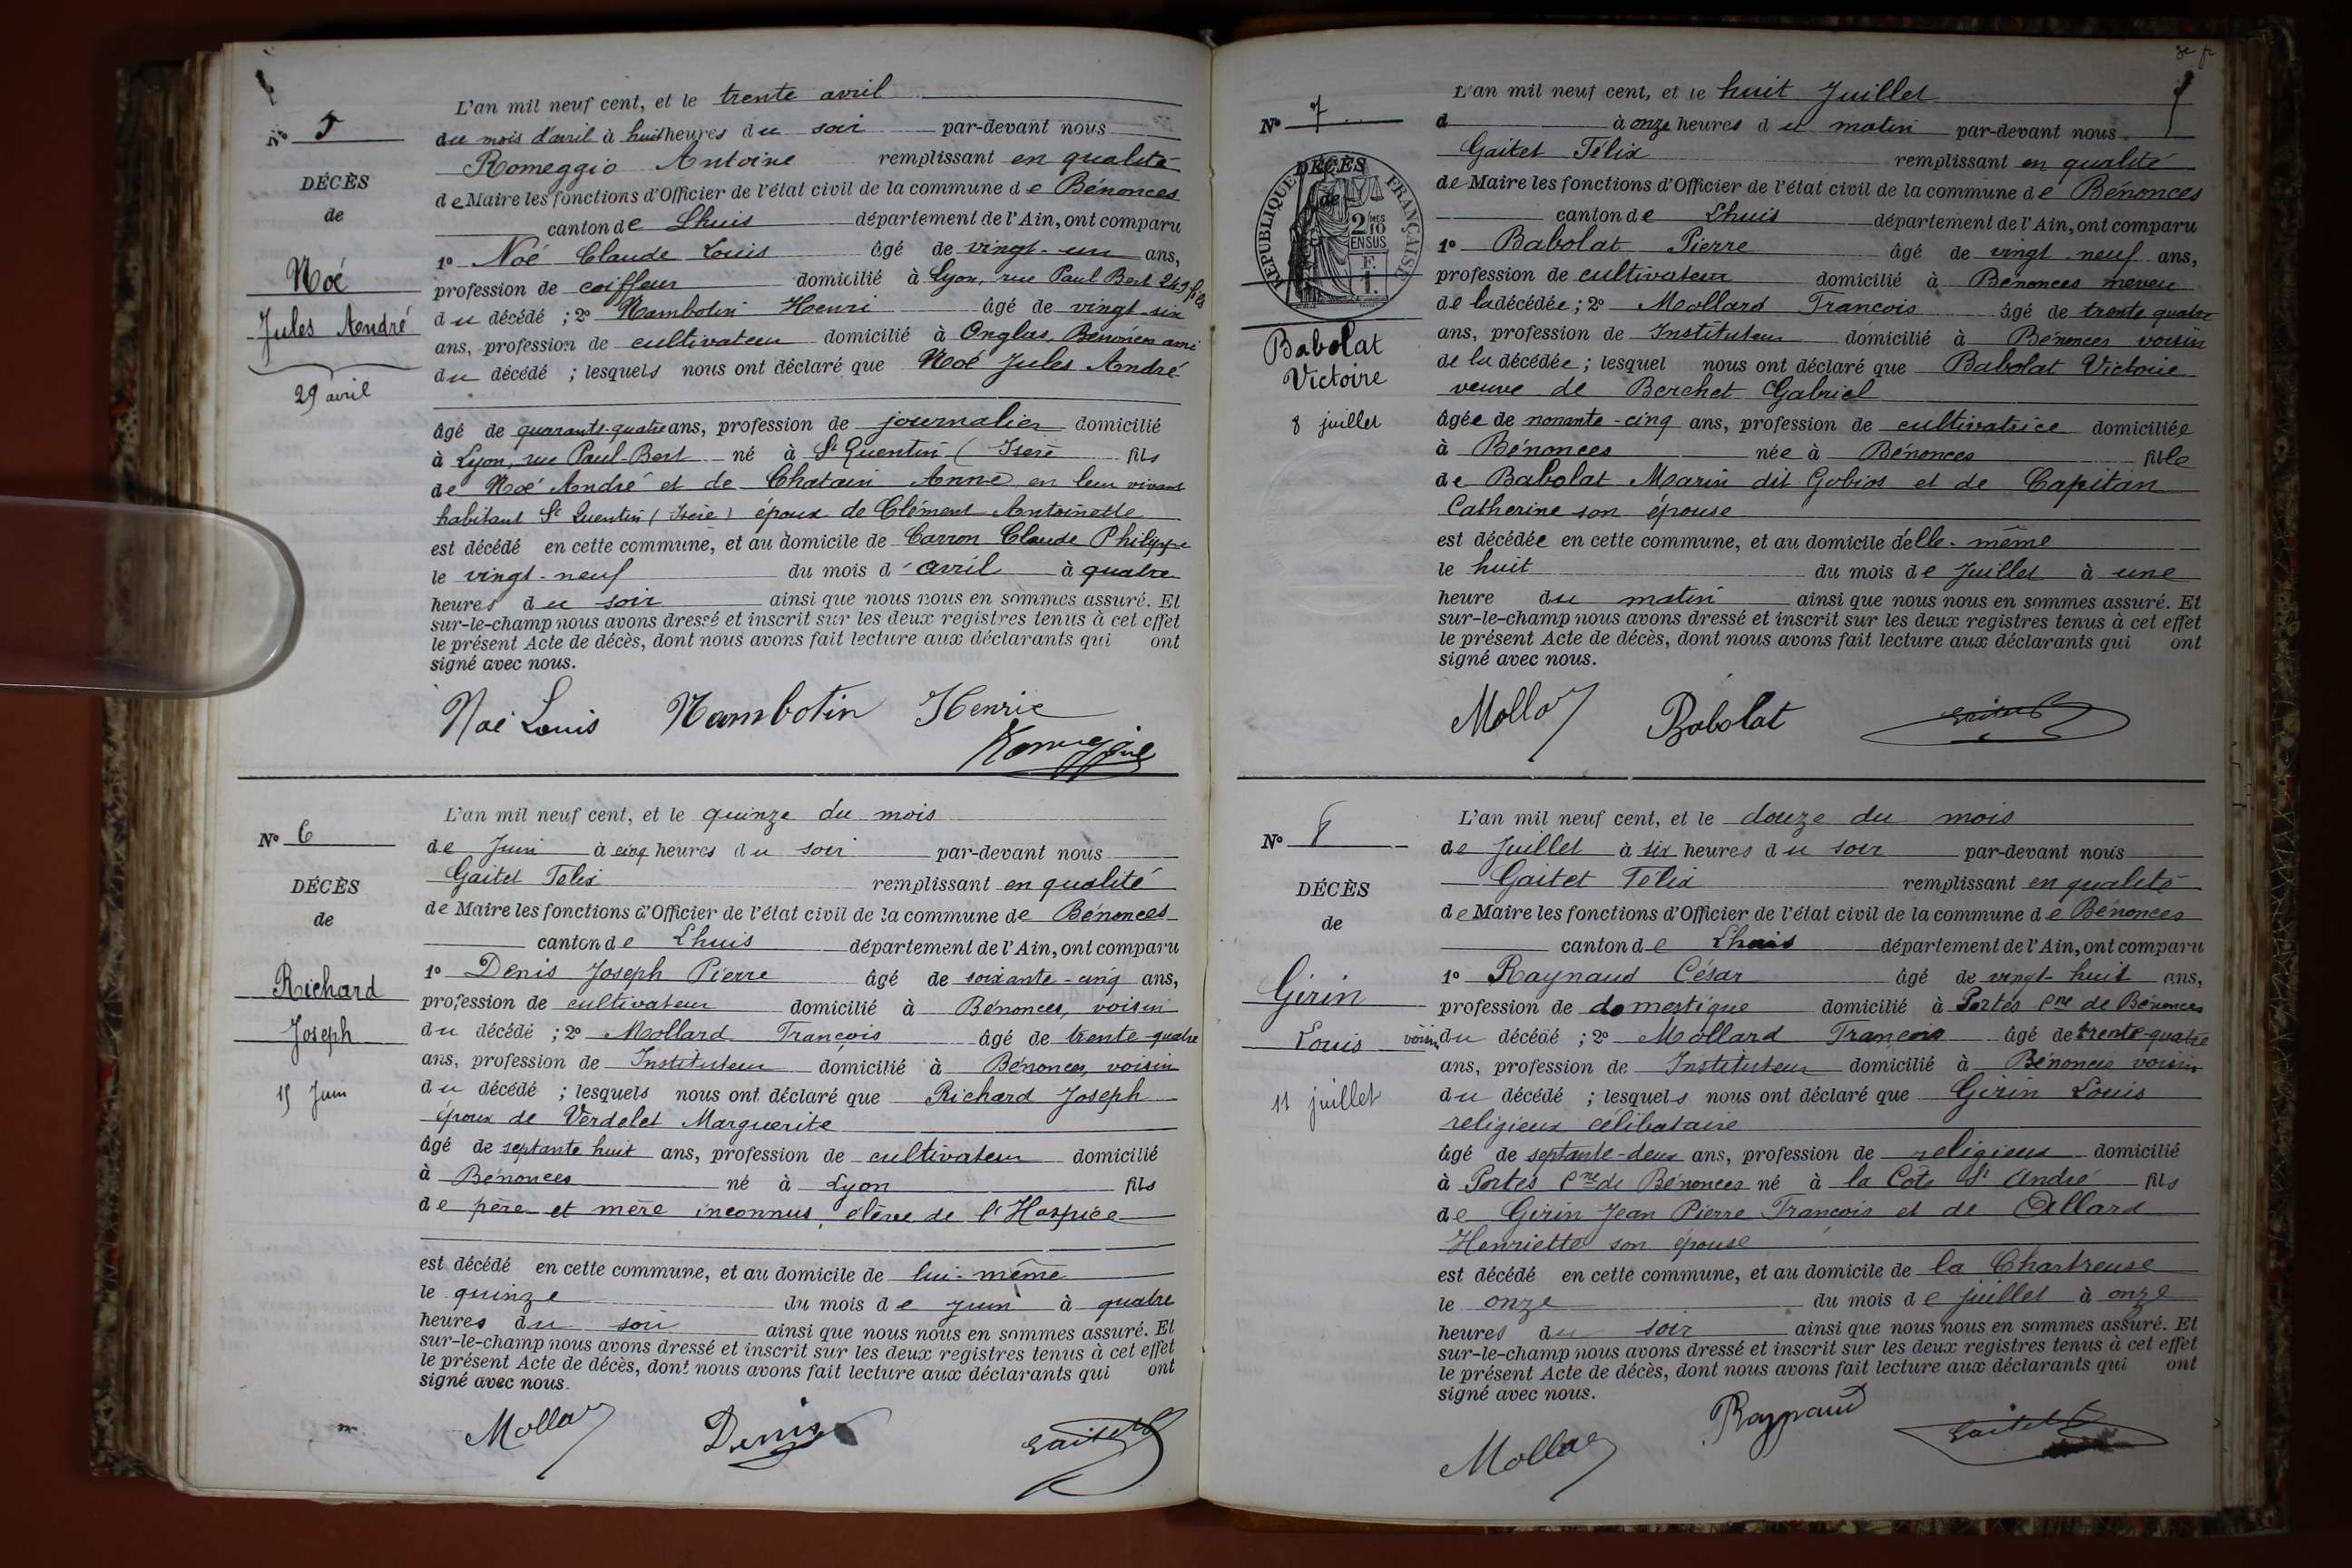 L'an mil neuf cent, et le trente avril
Nº 5
du mois d'avril à huit heures du soir par-devant nous
Romeggio Antoine remplissant en qualité
DÉCÈS
de Maire les fonctions d'Officier de l'état civil de la commune de Bénonces
de
canton de Lhuis département de l'Ain, ont comparu
1º Noé Claude Louis âgé de vingt-un ans,
Noé
profession de coiffeur domicilié à Lyon, rue Paul Bert 249 fils
Jules André
du décédé ; 2º Nambotin Henri âgé de vingt-six
ans, profession de cultivateur domicilié à Onglas, Bénonces ami
29 avril
du décédé ; lesquels nous ont déclaré que Noé Jules André
âgé de quarante-quatre ans, profession de journalier domicilié
à Lyon, rue Paul-Bert né à St Quentin (Isère fils
de Noé André et de Chatain Anne en leur vivant
habitant St Quentin (Isère) époux de Clément Antoinette
est décédé en cette commune, et au domicile de Carron Claude Philippe
le vingt-neuf du mois d'avril à quatre
heures du soir ainsi que nous nous en sommes assuré. Et
sur-le-champ nous avons dressé et inscrit sur les deux registres tenus à cet effet
le présent Acte de décès, dont nous avons fait lecture aux déclarants qui ont
signé avec nous.
Noé Louis Nambotin Henri
Romeggio
L'an mil neuf cent, et le quinze du mois
Nº 6
de Juin à cinq heures du soir par-devant nous
Gaitet Félix remplissant en qualité
DÉCÈS
de Maire les fonctions d'Officier de l'état civil de la commune de Bénonces
de
canton de Lhuis département de l'Ain, ont comparu
1º Denis Joseph Pierre âgé de soixante-cinq ans,
Richard
profession de cultivateur domicilié à Bénonces, voisin
Joseph
du décédé ; 2º Mollard François âgé de trente-quatre
ans, profession de Instituteur domicilié à Bénonces, voisin
15 Juin
du décédé ; lesquels nous ont déclaré que Richard Joseph
époux de Verdelet Marguerite
âgé de septante huit ans, profession de cultivateur domicilié
à Bénonces né à Lyon fils
de père et mère inconnus, élève de l'Hospice
est décédé en cette commune, et au domicile de lui-même
le quinze du mois de Juin à quatre
heures du soir ainsi que nous nous en sommes assuré. Et
sur-le-champ nous avons dressé et inscrit sur les deux registres tenus à cet effet
le présent Acte de décès, dont nous avons fait lecture aux déclarants qui ont
signé avec nous.
Mollard Denis Gaitet
L'an mil neuf cent, et le huit Juillet
Nº 7
d à onze heures du matin par-devant nous
Gaitet Félix remplissant en qualité
DÉCÈS
RÉPUBLIQUE FRANÇAISE
2 MES 10 EN SUS
F. 1.
de Maire les fonctions d'Officier de l'état civil de la commune de Bénonces
de
canton de Lhuis département de l'Ain, ont comparu
1º Babolat Pierre âgé de vingt-neuf ans,
profession de cultivateur domicilié à Bénonces neveu
de la décédée ; 2º Mollard François âgé de trente quatre
Babolat
ans, profession de Instituteur domicilié à Bénonces voisin
Victoire
de la décédée ; lesquel nous ont déclaré que Babolat Victoire
veuve de Berchet Gabriel
8 juillet
âgée de nonante-cinq ans, profession de cultivatrice domiciliée
à Bénonces née à Bénonces fille
de Babolat Marin dit Gobios et de Capitan
Catherine son épouse
est décédée en cette commune, et au domicile d'elle-même
le huit du mois de Juillet à une
heure du matin ainsi que nous nous en sommes assuré. Et
sur-le-champ nous avons dressé et inscrit sur les deux registres tenus à cet effet
le présent Acte de décès, dont nous avons fait lecture aux déclarants qui ont
signé avec nous.
Mollard Babolat Gaitet
L'an mil neuf cent, et le douze du mois
Nº 8
de Juillet à six heures du soir par-devant nous
Gaitet Félix remplissant en qualité
DÉCÈS
de Maire les fonctions d'Officier de l'état civil de la commune de Bénonces
de
canton de Lhuis département de l'Ain, ont comparu
1º Raynaud César âgé de vingt-huit ans,
Girin
profession de domestique domicilié à Portes Cne de Bénonces
Louis
voisin du décédé ; 2º Mollard François âgé de trente-quatre
ans, profession de Instituteur domicilié à Bénonces voisin
11 juillet
du décédé ; lesquels nous ont déclaré que Girin Louis
religieux célibataire
âgé de septante-deux ans, profession de religieux domicilié
à Portes Cne de Bénonces né à la Côte St André fils
de Girin Jean Pierre François et de Allard
Henriette son épouse
est décédé en cette commune, et au domicile de la Chartreuse
le onze du mois de juillet à onze
heures du soir ainsi que nous nous en sommes assuré. Et
sur-le-champ nous avons dressé et inscrit sur les deux registres tenus à cet effet
le présent Acte de décès, dont nous avons fait lecture aux déclarants qui ont
signé avec nous.
Mollard Raynaud Gaitet